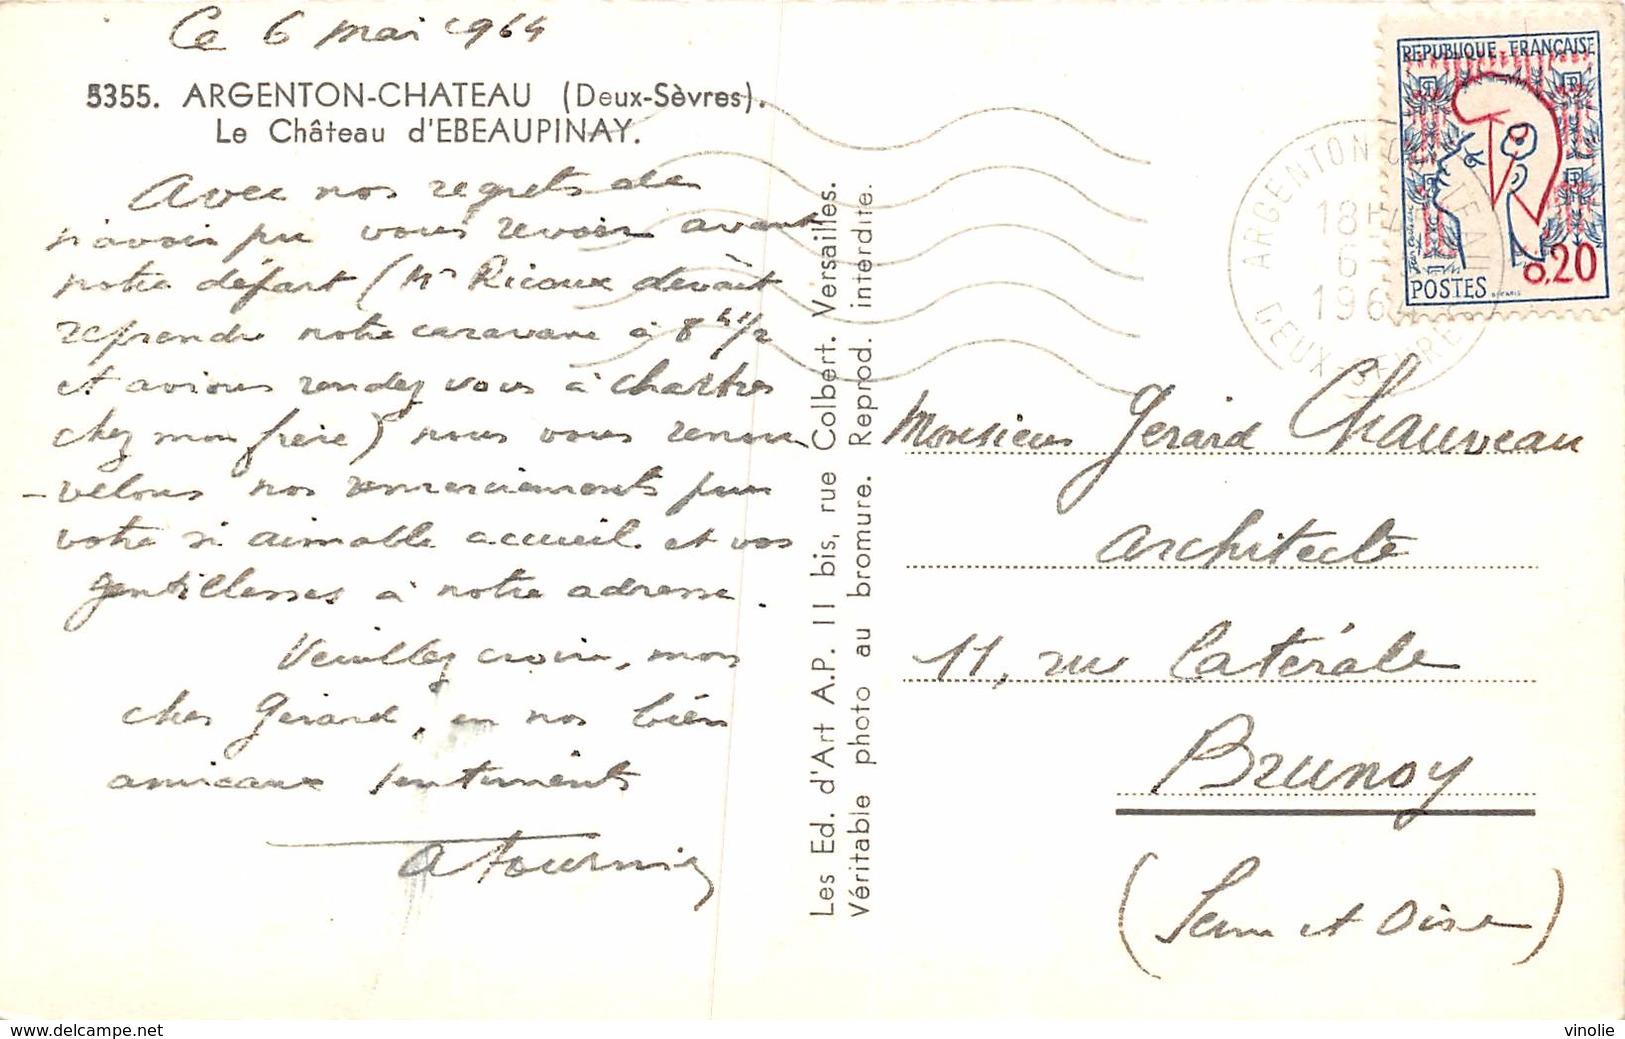 Ce 6 mai 1964
5355. ARGENTON-CHATEAU (Deux-Sèvres).
Le Château d'EBEAUPINAY.
Avec nos regrets de
n'avoir pu vous revoir avant
notre départ (Mr Ricoux devait
reprendre notre caravane à 8h 1/2
et avions rendez vous à Chartres
chez mon frère) nous vous renou
-velons nos remerciements pour
votre si aimable accueil et vos
gentillesses à notre adresse.
Veuillez croire, mon
cher Gérard, en nos bien
amicaux sentiments
A Tournier
Les Ed. d'Art A.P. 11 bis, rue Colbert. Versailles.
Véritable photo au bromure. Reprod. interdite.
REPUBLIQUE FRANÇAISE
0,20
POSTES
ARGENTON CHATEAU
18H
6
1964
DEUX-SEVRES
Monsieur Gérard Chauveau
architecte
11, rue Latérale
Brunoy
(Seine et Oise)
www.delcampe.net
vinolie